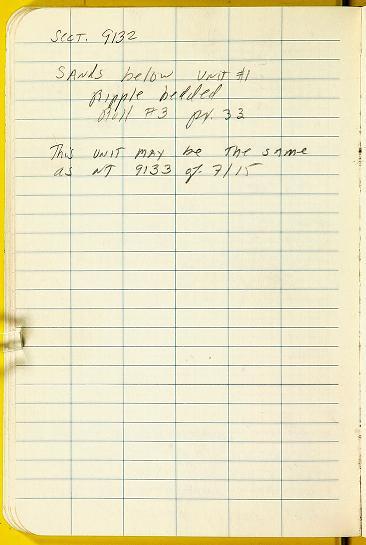 SECT. 9132
SANDS below UNIT #1
Ripple bedded
Roll #3 pr. 33
This UNIT MAY be The same
as NT 9133 of 7/15